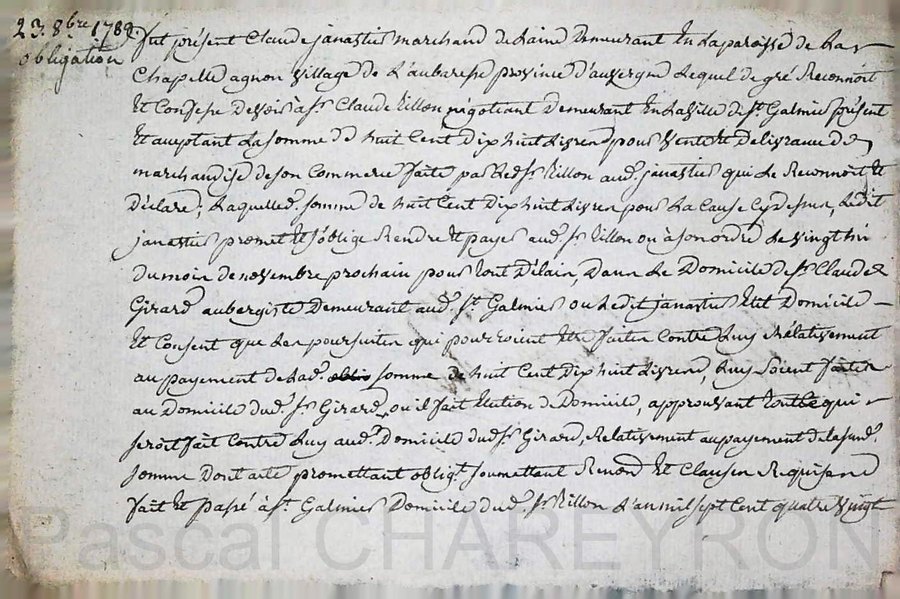 23. 8bre 1782.
obligation
fut présent Claude janastier marchand de laine Demeurant En La paroisse de La
Chapelle agnon village de L'aubareshe province d'auvergne Lequel de gré Reconnoit
Et Confesse Devoir à sr. Claude Villon négotiant Demeurant En La ville de st. Galmier présent
Et acceptant La somme de huit Cent Dix huit Livres pour vente Et Delivrance de
marchandise de son Commerce faite par Led. sr. Villon aud. janastier qui Le Reconnoit Et
Déclare, Laquelle d. somme de huit Cent Dix huit Livres pour La Cause Cy dessus, Ledit
janastier promet Et s'oblige Rendre Et payer aud. sr. Villon ou à son ordre Le vingt
Du mois de novembre prochain pour tout Délain, Dans Le Domicile de sr. Claude
Girard aubergiste Demeurant aud. st. Galmier ou Ledit janastier Elit Domicile
Et Consent que Les poursuites qui pourroient Etre faites Contre Luy Rélativement
au payement de Lad. somme de huit Cent Dix huit Livres, Luy soient faites
au Domicile dud. sr. Girard, ou il fait Election de Domicile, approuvant tout ce qui
seroit fait Contre Luy aud. Domicile dud. sr. Girard, Relativement au payement de la susd.
somme Dont acte promettant obligt. soumettant Renond Et Clauses Requises
fait Et passé à st. Galmier Domicile dud. sr. Villon L'an mil sept Cent quatre vingt
Pascal CHAREYRON